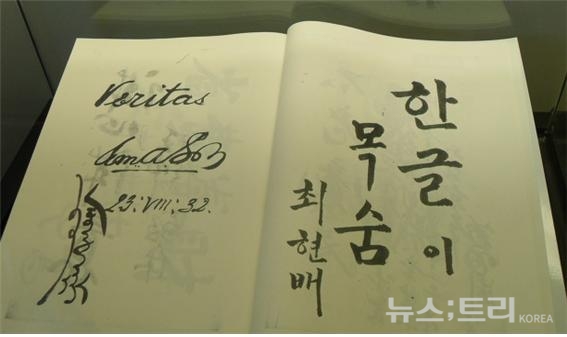 Veritas
23: VIII: 32.
한글이
목숨
최현배
뉴스;트리 KOREA